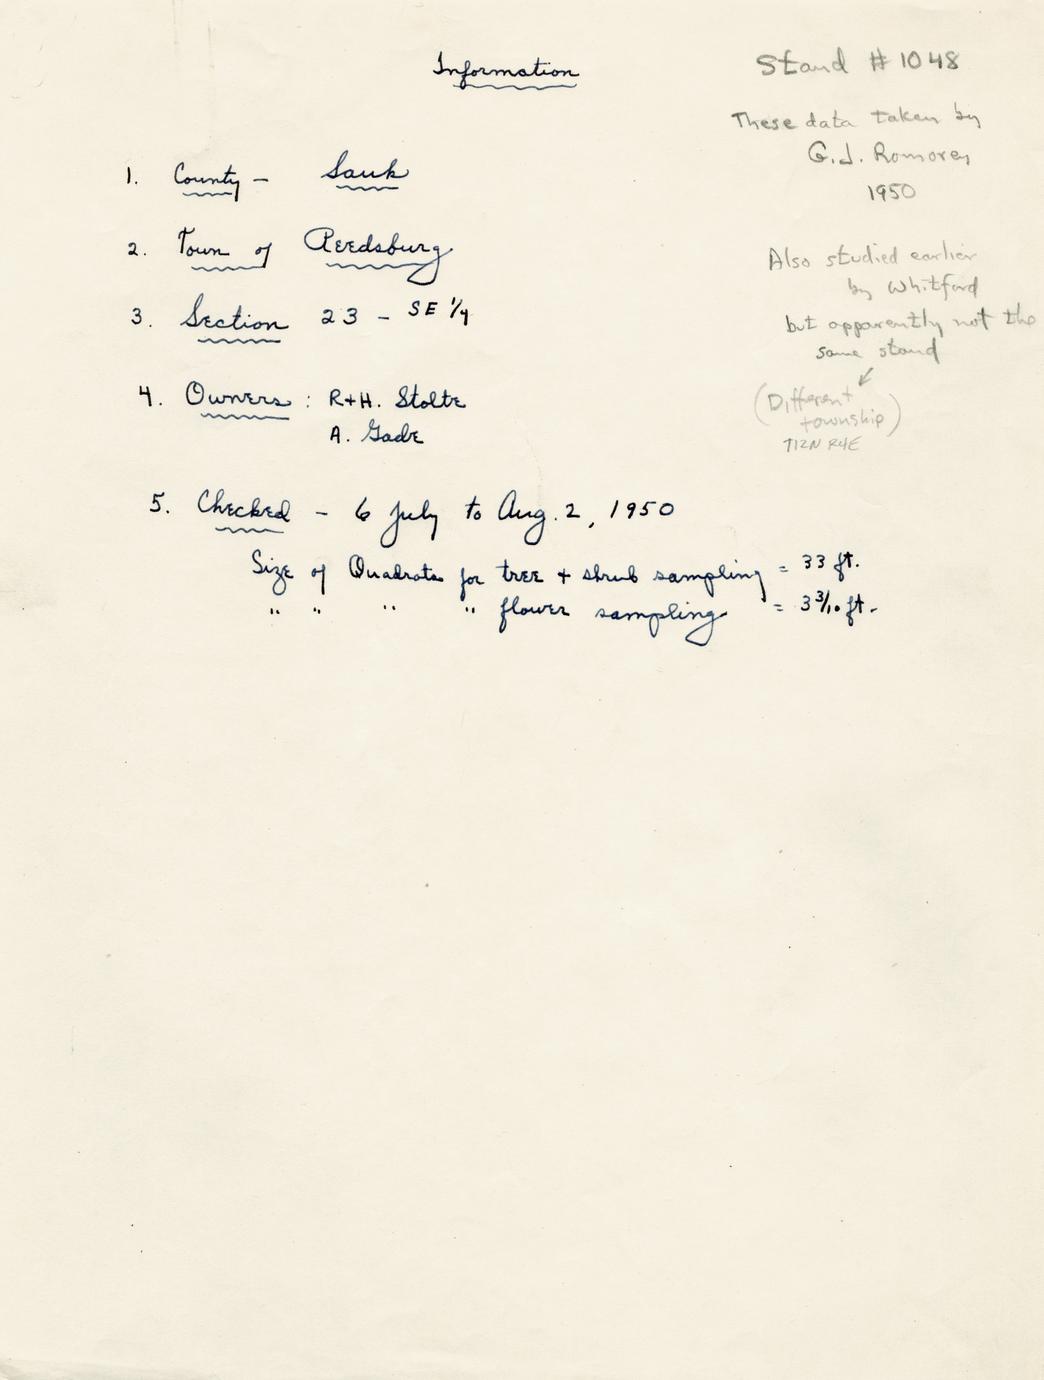 Information
Stand # 1048
These data taken by
G.J. Romorey
1950
Also studied earlier
by Whitford
but apparently not the
same stand
(Different
township)
T12N R4E
1. County - Sauk
2. Town of Reedsburg
3. Section 23 - SE 1/4
4. Owners : R+H. Stolte
A. Gade
5. Checked - 6 July to Aug. 2, 1950
Size of Quadrats for tree + shrub sampling = 33 ft.
" " " " flower sampling = 3 3/10 ft.